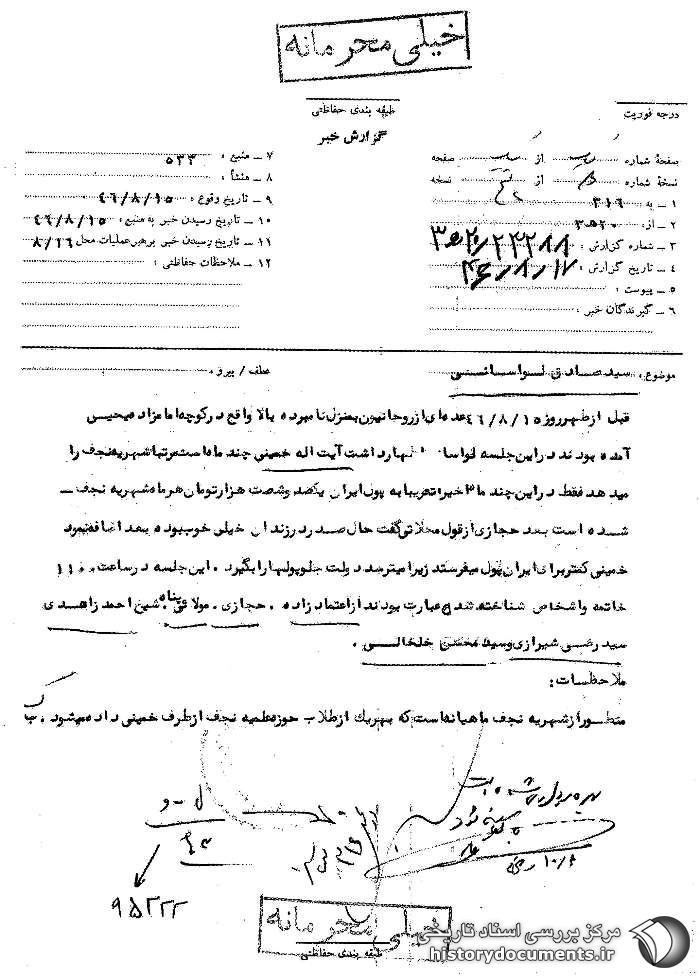 خیلی محرمانه
طبقه بندی حفاظتی
درجه فوریت
گزارش خبر
صفحهٔ شماره از صفحه
نسخهٔ شماره از نسخه
۱ ـ به ۳۱۶
۲ ـ از: ۲۰ﻫ۳
۳ ـ شماره گزارش: ۲۰ﻫ۳/۲۲۲۸۸
۴ ـ تاریخ گزارش: ۴۶/۸/۱۷
۵ ـ پیوست:
۶ ـ گیرندگان خبر:
۷ ـ منبع: ۵۳۳
۸ ـ منشأ:
۹ ـ تاریخ وقوع: ۴۶/۸/۱۵
۱۰ ـ تاریخ رسیدن خبر به منبع: ۴۶/۸/۱۵
۱۱ ـ تاریخ رسیدن خبر برهبر عملیات محل ۸/۱۶
۱۲ ـ ملاحظات حفاظتی:
موضوع: سید صادق لواسانی
عطف / پیرو:
قبل از ظهر روز ۴۶/۸/۱۵ عده‌ای از روحانیون بمنزل نامبرده بالا واقع در کوچه امامزاده یحیی
آمده بودند در این جلسه لواسانی اظهار داشت آیت اله خمینی چند ماه است مرتبا شهریه نجف را
میدهد فقط در این چند ماه اخیر تقریبا به پول ایران یکصد و شصت هزار تومان هر ماه شهریه نجف ـ
شده است بعد حجازی از قول محلاتی گفت حال صدر در زندان خیلی خوب بوده بعد اضافه نمود
خمینی کمتر برای ایران پول میفرستد زیرا میترسد دولت جلو پولها را بگیرد . این جلسه در ساعت ۱۱۰۰
خاتمه و اشخاص شناخته شده عبارت بودند از اعتمادزاده . حجازی . مولائی پناه . شیخ احمد زاهدی
سید رضی شیرازی و سید محسن خلخالی .
ملاحظات:
منظور از شهریه نجف ماهیانه است که بهر یک از طلاب حوزه علمیه نجف از طرف خمینی داده میشود .
۹۵۲۲۲
خیلی محرمانه
طبقه بندی حفاظتی
مرکز بررسی اسناد تاریخی
historydocuments.ir